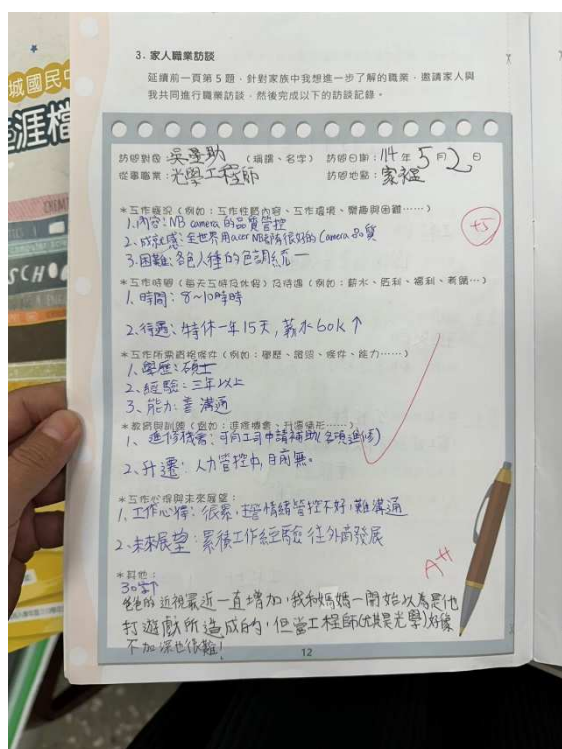 城國民中
涯檔
SCHO
3. 家人職業訪談
延續前一頁第 5 題,針對家族中我想進一步了解的職業,邀請家人與
我共同進行職業訪談,然後完成以下的訪談記錄。
訪問對象:吳 助 (稱謂、名字) 訪問日期:114 年 5 月 2 日
從事職業:光學工程師 訪問地點:家裡
*工作概況(例如:工作性質內容、工作環境、樂趣與困難……)
1.內容:NB camera 的品質管控
2.成就感:全世界用acer NB 很好的 Camera 品質
3.困難:各色人種的色調統一
+5
*工作時間(每天工時及休假)及待遇(例如:薪水、獎利、福利、考績…)
1.時間:8~10時
2.待遇:特休一年15天,薪水60k↑
*工作所需資格條件(例如:學歷、證照、條件、能力……)
1.學歷:碩士
2.經驗:三年以上
3.能力:會溝通
*教育與訓練(例如:進修機會、升遷情形……)
1.進修機會:可向公司申請補助(各項進修)
2.升遷:人力管控中,目前無。
*工作心得與未來展望:
1.工作心得:很累,主管情緒管控不好,難溝通
2.未來展望:累積工作經驗往外商發展
*其他:
30字↑
A++
爸爸的近視最近一直增加,我和媽媽一開始以為是他
打遊戲所造成的,但當工程師(尤其是光學)好像
不加深也很難!
12